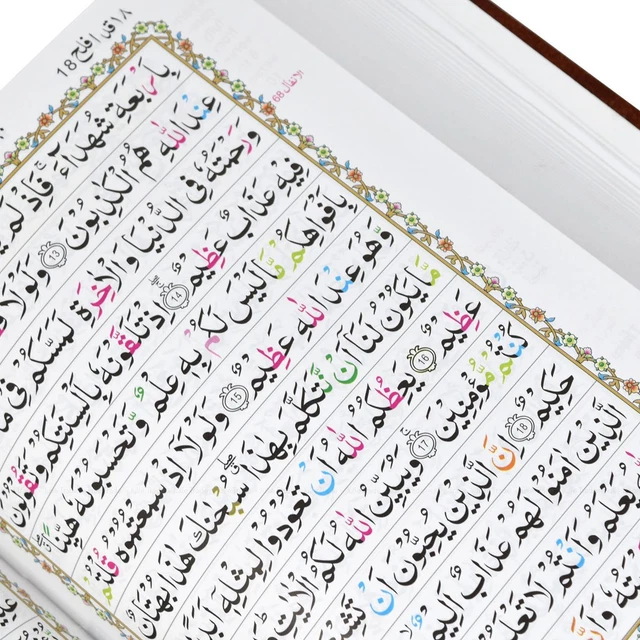 قد افلح 18
بِاَرْبَعَةِ شُهَدَآءَ ۚ فَاِذْ لَمْ
عِنْدَ اللّٰهِ هُمُ الْكٰذِبُوْنَ ﴿13﴾ وَلَوْلَا
وَرَحْمَتُهٗ فِى الدُّنْيَا وَالْاٰخِرَةِ لَمَسَّكُمْ فِىْ مَاۤ
فِيْهِ عَذَابٌ عَظِيْمٌ ﴿14﴾ اِذْ تَلَقَّوْنَهٗ بِاَلْسِنَتِكُمْ وَتَقُوْلُوْنَ
بِاَفْوَاهِكُمْ مَّا لَيْسَ لَكُمْ بِهٖ عِلْمٌ وَّتَحْسَبُوْنَهٗ هَيِّنًا
وَّهُوَ عِنْدَ اللّٰهِ عَظِيْمٌ ﴿15﴾ وَلَوْلَاۤ اِذْ سَمِعْتُمُوْهُ قُلْتُمْ
مَّا يَكُوْنُ لَنَاۤ اَنْ نَّتَكَلَّمَ بِهٰذَا سُبْحٰنَكَ هٰذَا بُهْتَانٌ
عَظِيْمٌ ﴿16﴾ يَعِظُكُمُ اللّٰهُ اَنْ تَعُوْدُوْا لِمِثْلِهٖۤ اَبَدًا
كُنْتُمْ مُّؤْمِنِيْنَ ﴿17﴾ وَيُبَيِّنُ اللّٰهُ لَكُمُ الْاٰيٰتِ
حَكِيْمٌ ﴿18﴾ اِنَّ الَّذِيْنَ يُحِبُّوْنَ اَنْ تَشِيْعَ
الَّذِيْنَ اٰمَنُوْا لَهُمْ عَذَابٌ اَلِيْمٌ
يَعْلَمُ وَاَنْتُمْ لَا تَعْلَمُوْنَ